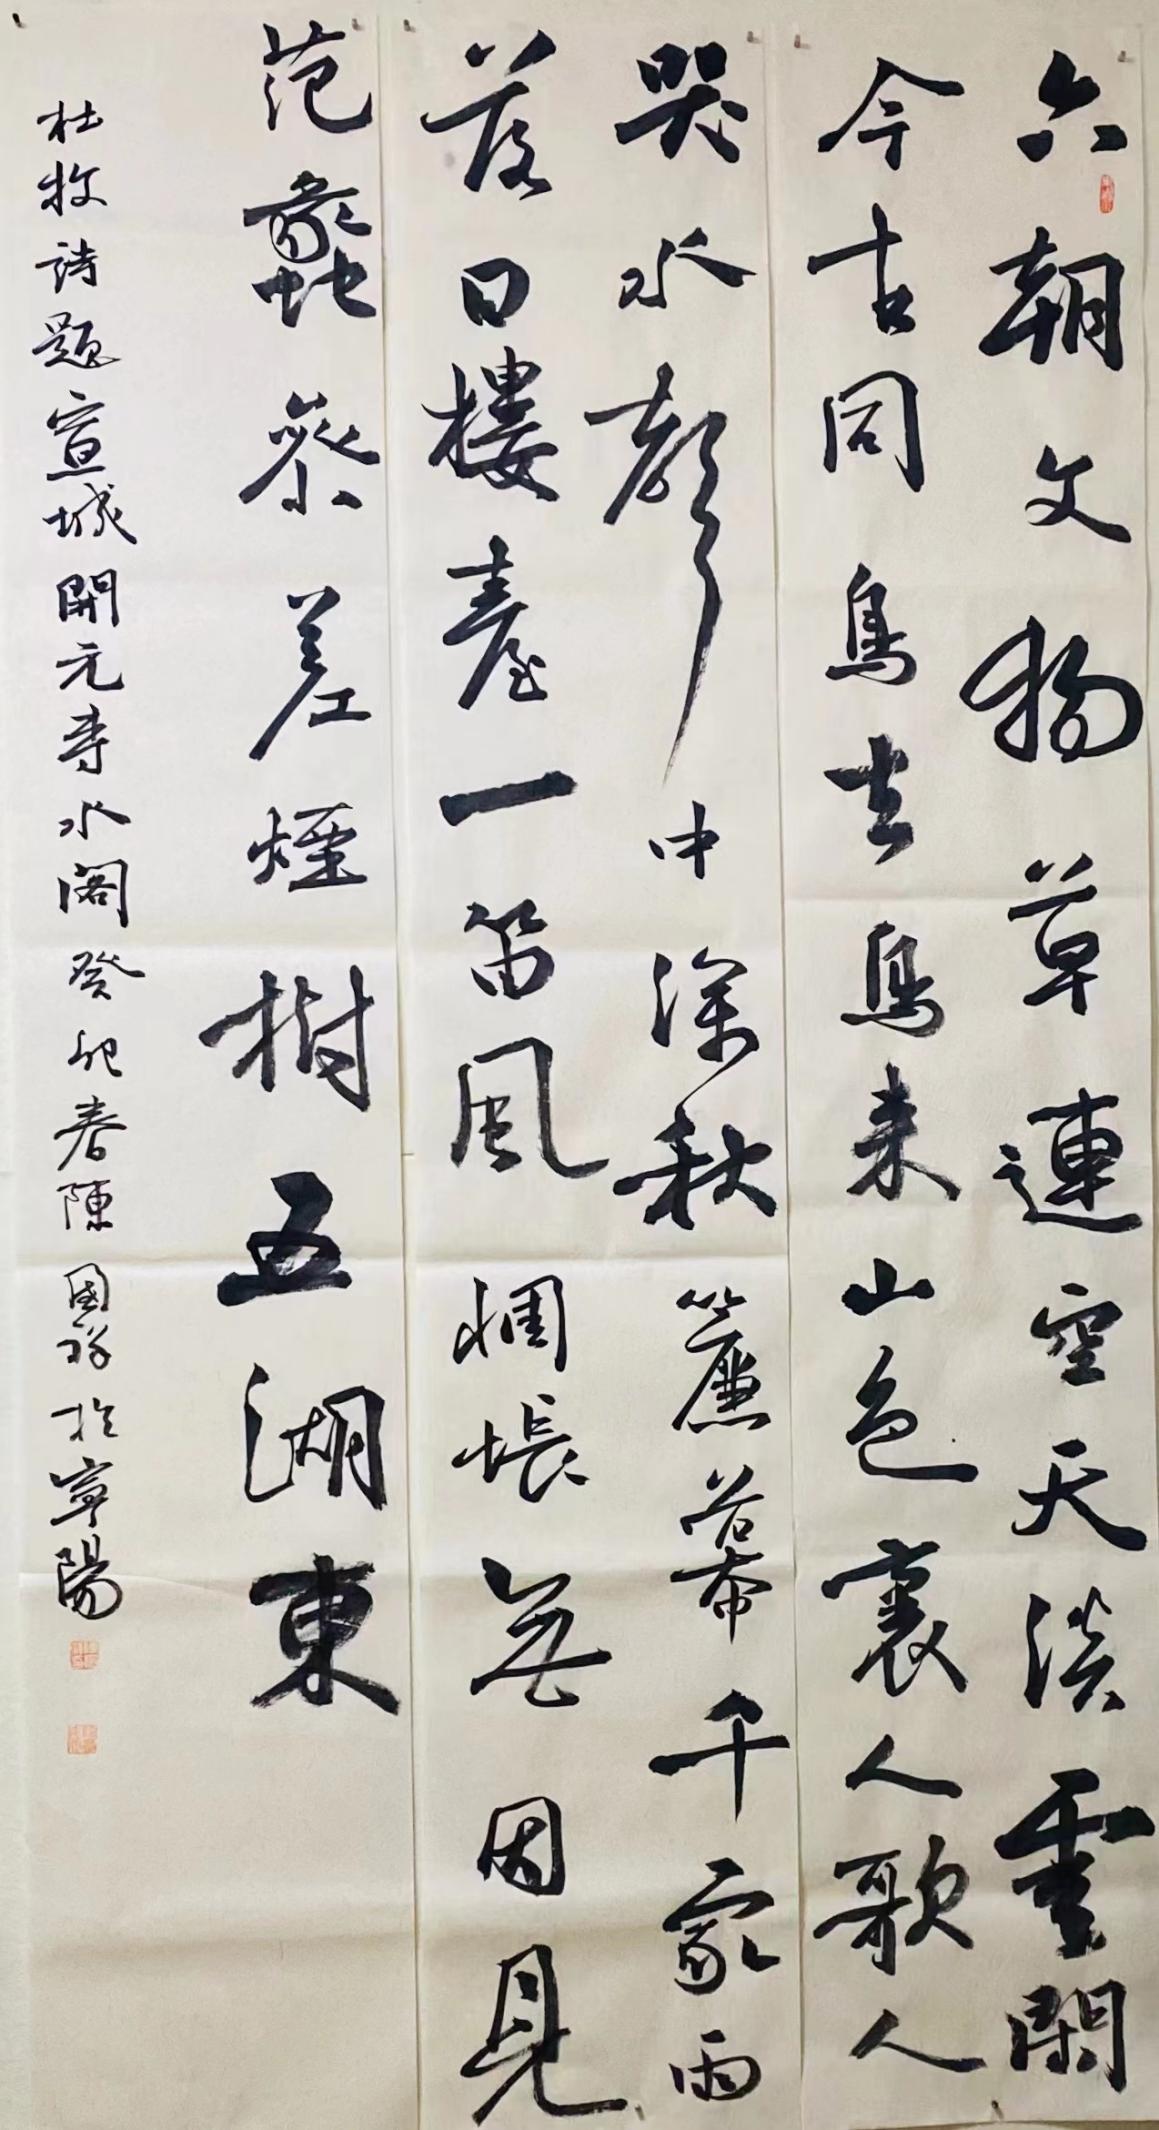 六朝文物草連空天淡雲閑
今古同鳥去鳥来山色裏人歌人
哭水聲中深秋簾幕千家雨
落日樓臺一笛風惆悵無因見
范蠡參差煙樹五湖東
杜牧詩題宣城開元寺水閣癸卯春陳國祥於寧陽